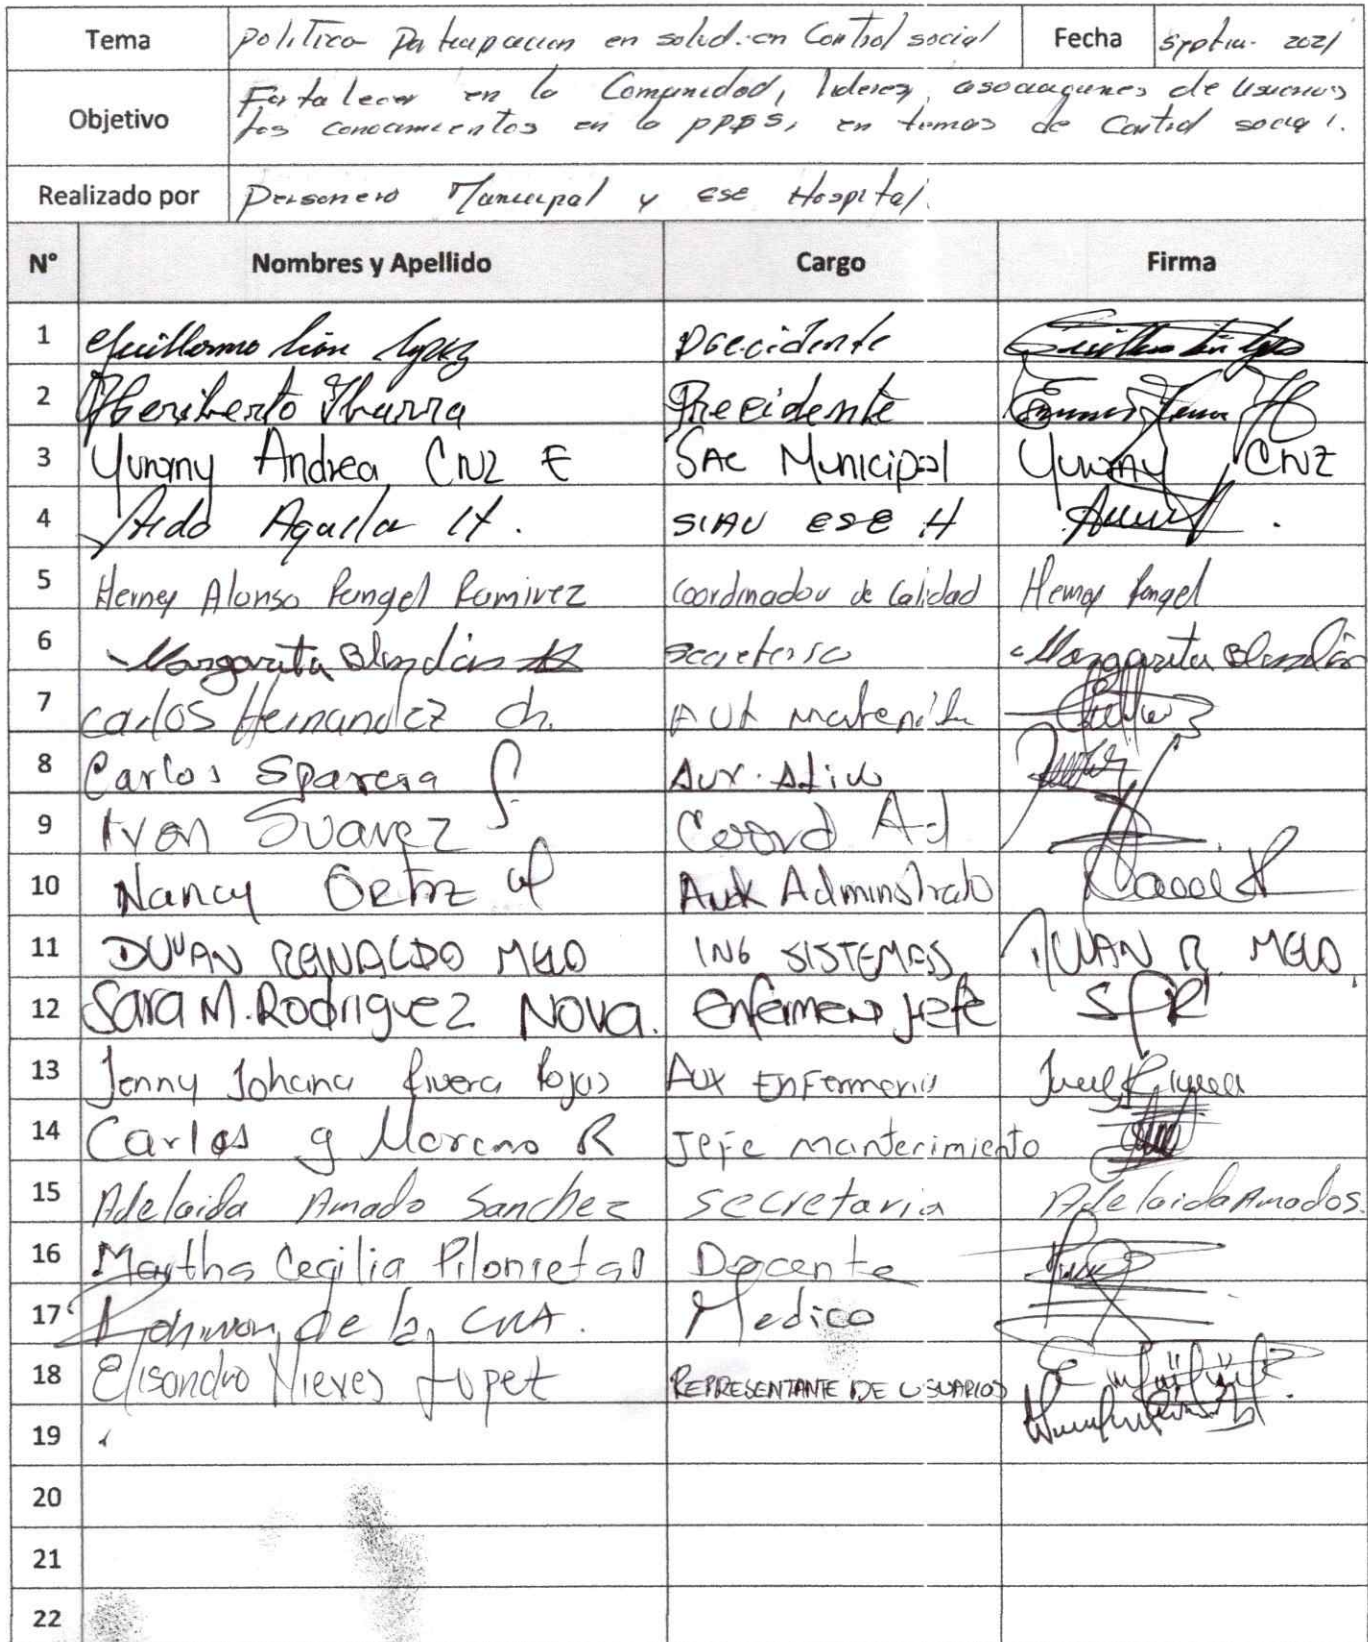 Tema politica Participacion en salud. en Control social Fecha septiem- 2021
Objetivo Fortalecer en la Comunidad, lideres, asociaciones de usuarios
los conocimientos en la PPSS, en temas de Control social.
Realizado por Personero Municipal y ESE Hospital.
N° Nombres y Apellido Cargo Firma
1 Guillermo León López Precidente
2 Heriberto Ibarra Precidente
3 Yurany Andrea Cruz E SAC Municipal Yurany Cruz
4 Aguilar H. SIAU ESE H
5 Herney Alonso Rangel Ramirez Coordinador de Calidad Herney Rangel
6 Margarita Blandón secretaria Margarita Blandón
7 Carlos Hernandez Ch. AUX
8 Carlos Esparza Aux. Ativo
9 Ivan Suarez Coord Ad
10 Nancy Ortiz Aux Administrativo
11 DUVAN REINALDO MELO ING SISTEMAS DUVAN R. MELO
12 Sara M. Rodriguez Nova. Enfermera Jefe
13 Jenny Johana Rivera Rojas Aux Enfermeria
14 Carlos g Moreno R Jefe mantenimiento
15 Adelaida Amado Sanchez secretaria Adelaida Amado S.
16 Martha Cecilia Pilonieta Docente
17 de la Medico
18 Elisandro Nieves Lopez REPRESENTANTE DE USUARIOS
19
20
21
22